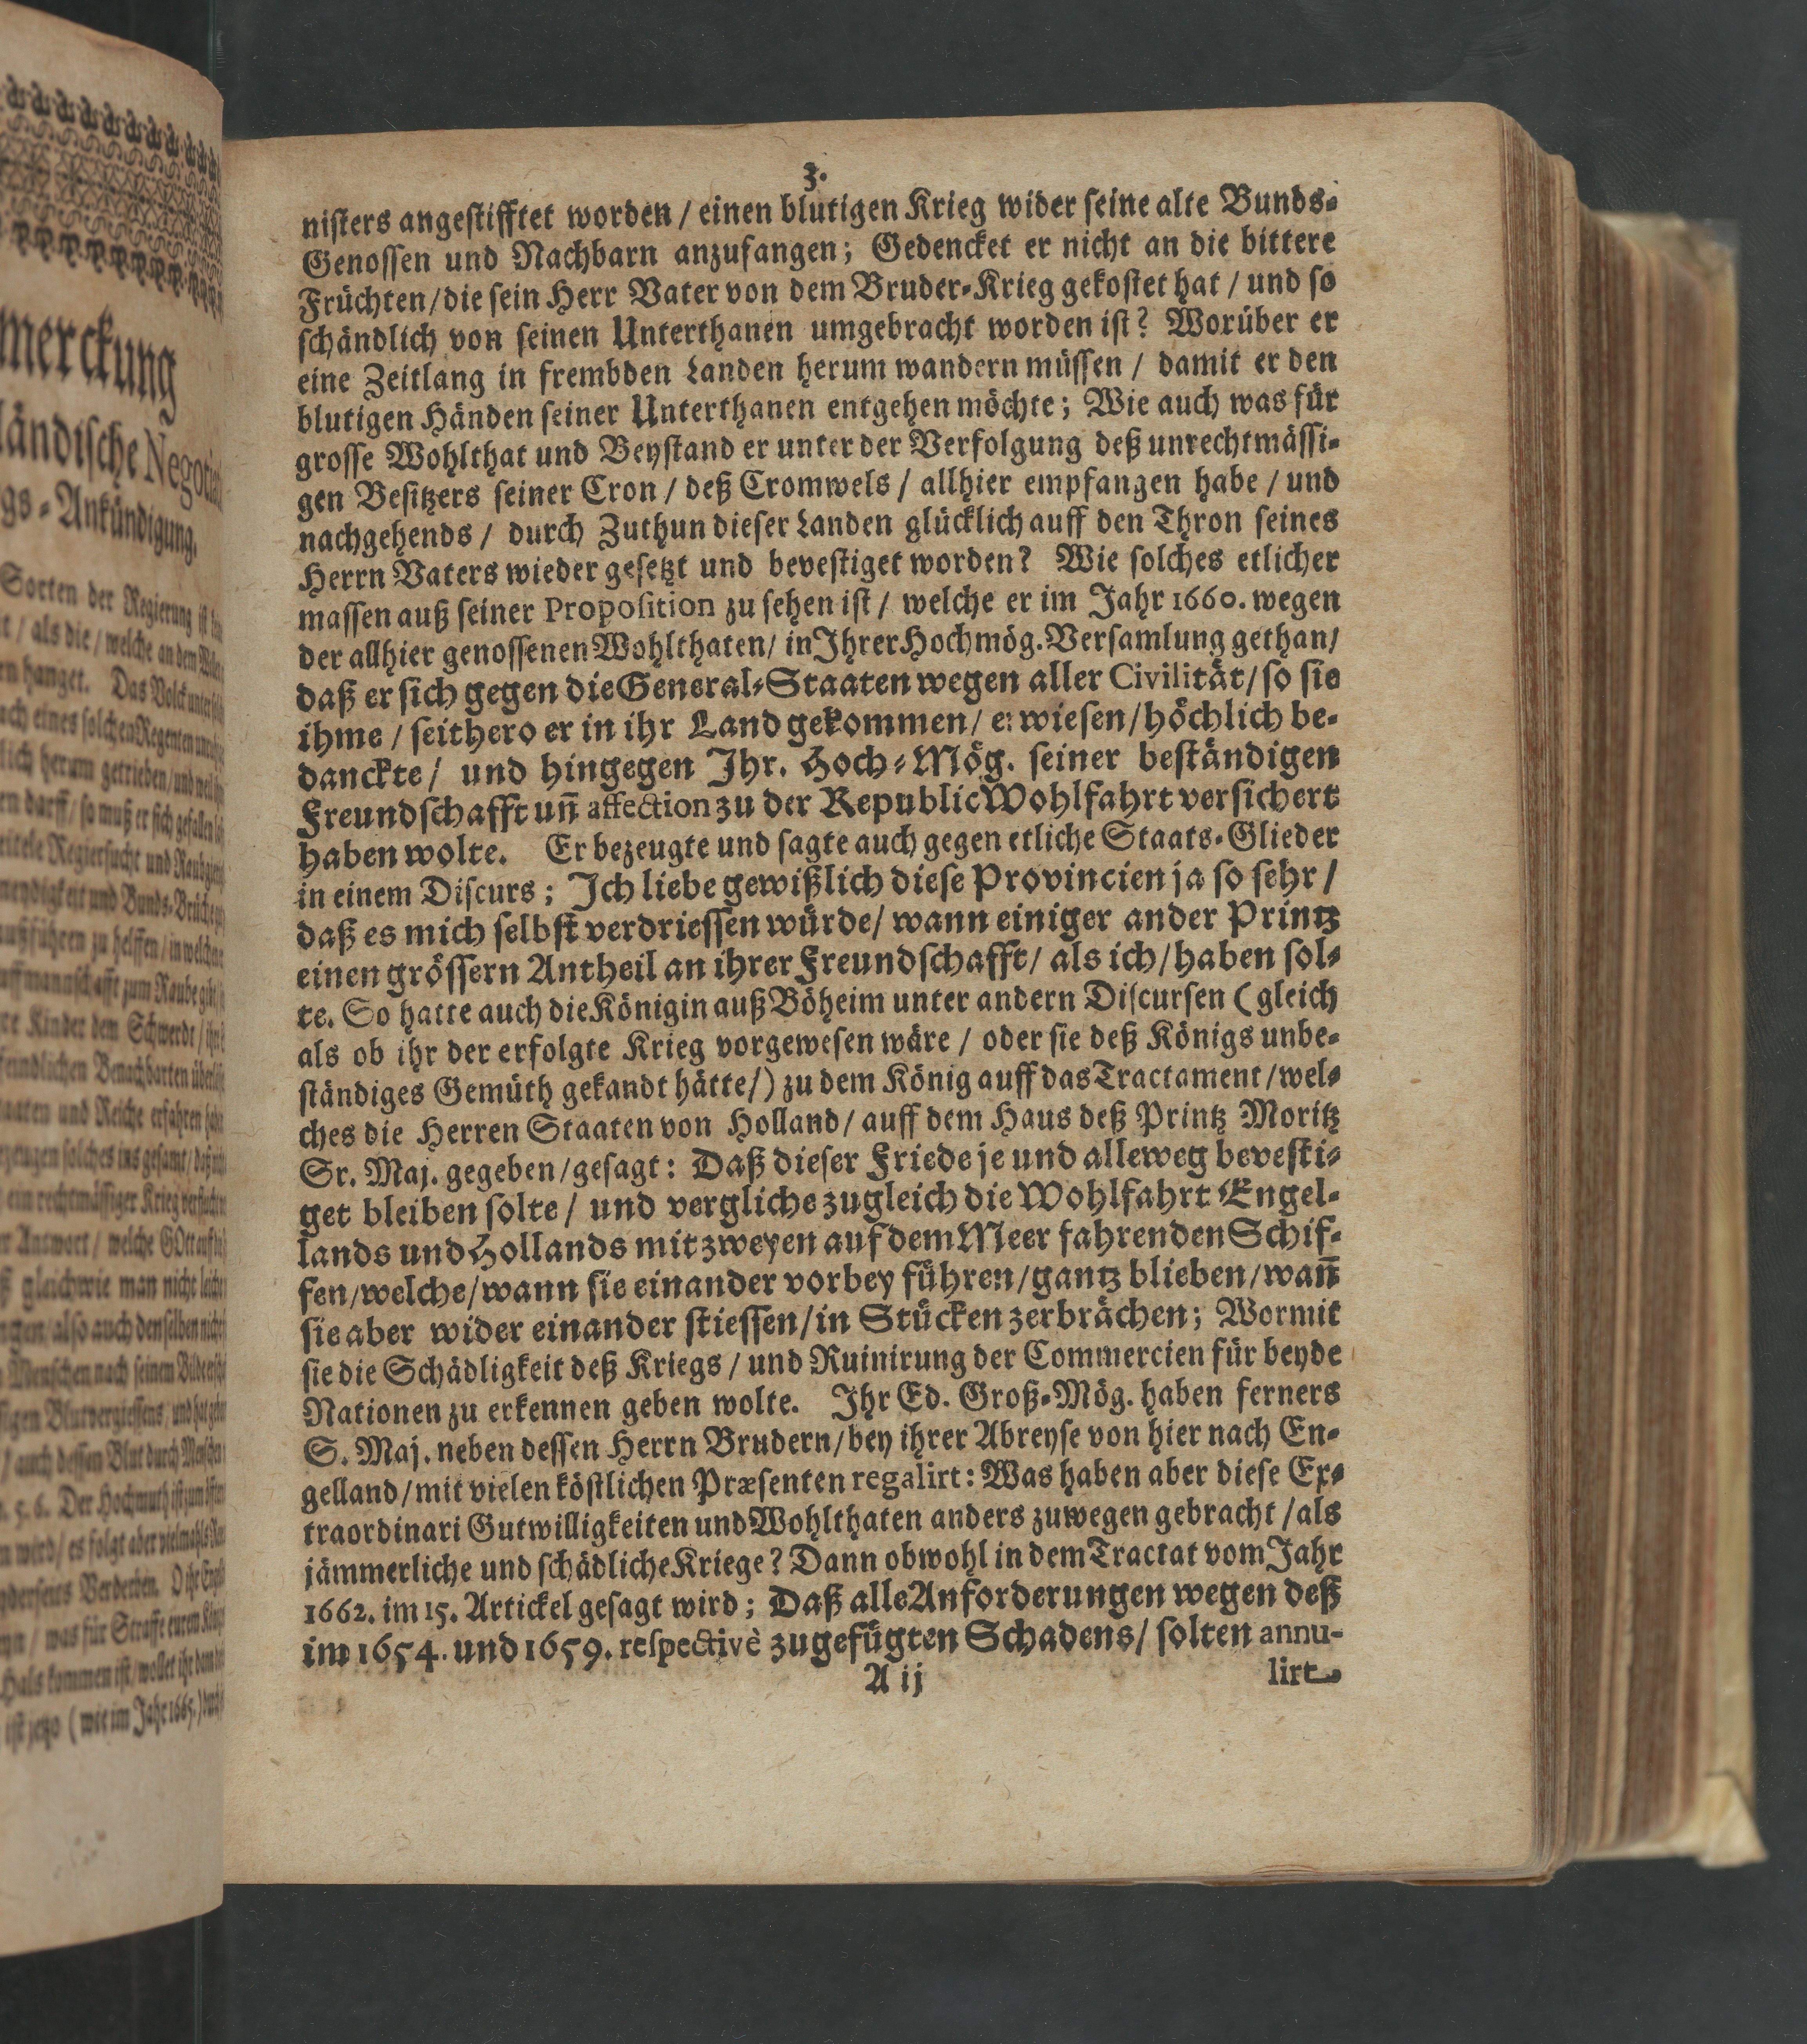 merckung
ländische Negotia
gs-Ankündigung.
Sorten der Regierung ist
als die / welche an dem
hanget. Das Volck unter
eines solchen Regenten
lich herum getrieben / und
darff / so muß er sich gefallen
Regiersucht und
und Bunds-
außführen zu helffen / in welchen
zum Raube
Kinder dem Schwerdt /
feindlichen Benachbarten
und Reiche erfahren
solches ins gesamt /
ein rechtmässiger Krieg
Antwort / welche GOtt
gleichwie man nicht leicht
also auch denselben nicht
Menschen nach seinem Bilde
Blutvergiessens / und
/ auch dessen Blut durch
5. 6. Der Hochmuth ist
wird / es folgt aber vielmahls
Verderben. O ihr
/ was für Straffe eurem
Hals kommen ist / wollet ihr dann
ist jetzo ( wie im Jahr 1665. )
3.
nisters angestifftet worden / einen blutigen Krieg wider seine alte Bunds-
Genossen und Nachbarn anzufangen; Gedencket er nicht an die bittere
Früchten / die sein Herr Vater von dem Bruder-Krieg gekostet hat / und so
schändlich von seinen Unterthanen umgebracht worden ist? Worüber er
eine Zeitlang in frembden Landen herum wandern müssen / damit er den
blutigen Händen seiner Unterthanen entgehen möchte; Wie auch was für
grosse Wohlthat und Beystand er unter der Verfolgung deß unrechtmässi-
gen Besitzers seiner Cron / deß Cromwels / allhier empfangen habe / und
nachgehends / durch Zuthun dieser Landen glücklich auff den Thron seines
Herrn Vaters wieder gesetzt und bevestiget worden? Wie solches etlicher
massen auß seiner Proposition zu sehen ist / welche er im Jahr 1660. wegen
der allhier genossenen Wohlthaten / in Ihrer Hochmög. Versamlung gethan /
daß er sich gegen die General-Staaten wegen aller Civilität / so sie
ihme / seithero er in ihr Land gekommen / erwiesen / höchlich be-
danckte / und hingegen Ihr. Hoch-Mög. seiner beständigen
Freundschafft uñ affection zu der Republic Wohlfahrt versichert
haben wolte. Er bezeugte und sagte auch gegen etliche Staats-Glieder
in einem Discurs; Ich liebe gewißlich diese Provincien ja so sehr /
daß es mich selbst verdriessen würde / wann einiger ander Printz
einen grössern Antheil an ihrer Freundschafft / als ich / haben sol-
te. So hatte auch die Königin auß Böheim unter andern Discursen ( gleich
als ob ihr der erfolgte Krieg vorgewesen wäre / oder sie deß Königs unbe-
ständiges Gemüth gekandt hätte / ) zu dem König auff das Tractament / wel-
ches die Herren Staaten von Holland / auff dem Haus deß Printz Moritz
Sr. Maj. gegeben / gesagt: Daß dieser Friede je und alleweg bevesti-
get bleiben solte / und vergliche zugleich die Wohlfahrt Engel-
lands und Hollands mit zweyen auf dem Meer fahrenden Schif-
fen / welche / wann sie einander vorbey führen / gantz blieben / wañ
sie aber wider einander stiessen / in Stücken zerbrächen; Wormit
sie die Schädligkeit deß Kriegs / und Ruinirung der Commercien für beyde
Nationen zu erkennen geben wolte. Ihr Ed. Groß-Mög. haben ferners
S. Maj. neben dessen Herrn Brudern / bey ihrer Abreyse von hier nach En-
gelland / mit vielen köstlichen Præsenten regalirt: Was haben aber diese Ex-
traordinari Gutwilligkeiten und Wohlthaten anders zuwegen gebracht / als
jämmerliche und schädliche Kriege? Dann obwohl in dem Tractat vom Jahr
1662. im 15. Artickel gesagt wird; Daß alle Anforderungen wegen deß
im 1654. und 1659. respectivè zugefügten Schadens / solten annu-
A ij
lirt